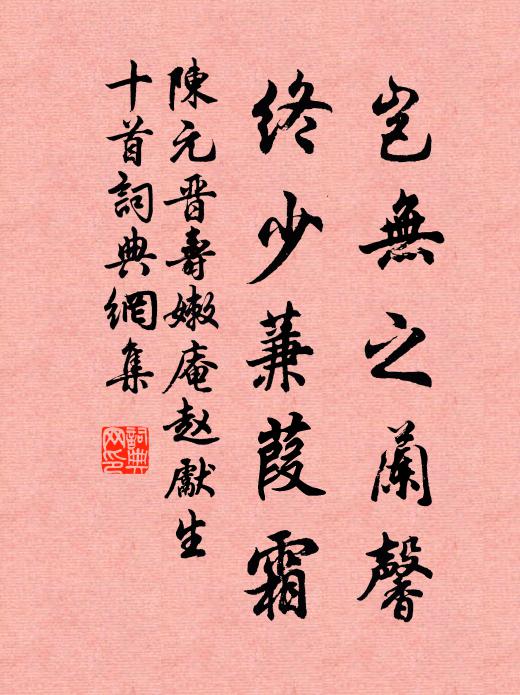 豈無之蘭馨
終少蒹葭霜
陳元晋壽嫩庵趙獻生
十首詞典網集
詞典網印